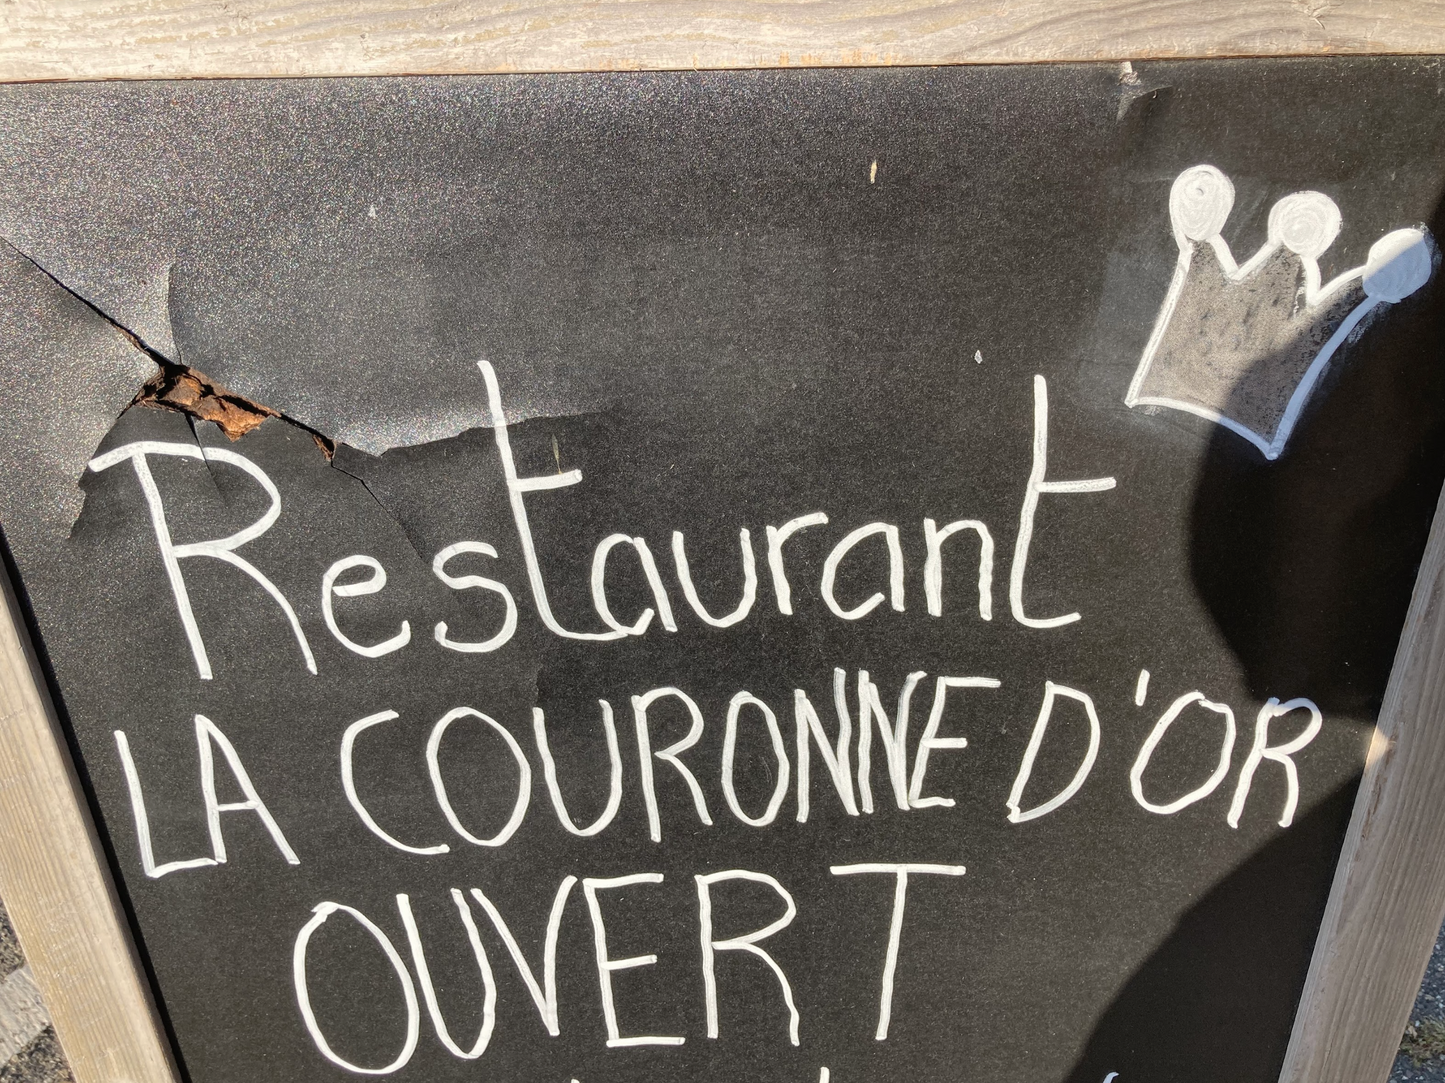 Restaurant
LA COURONNE D'OR
OUVERT